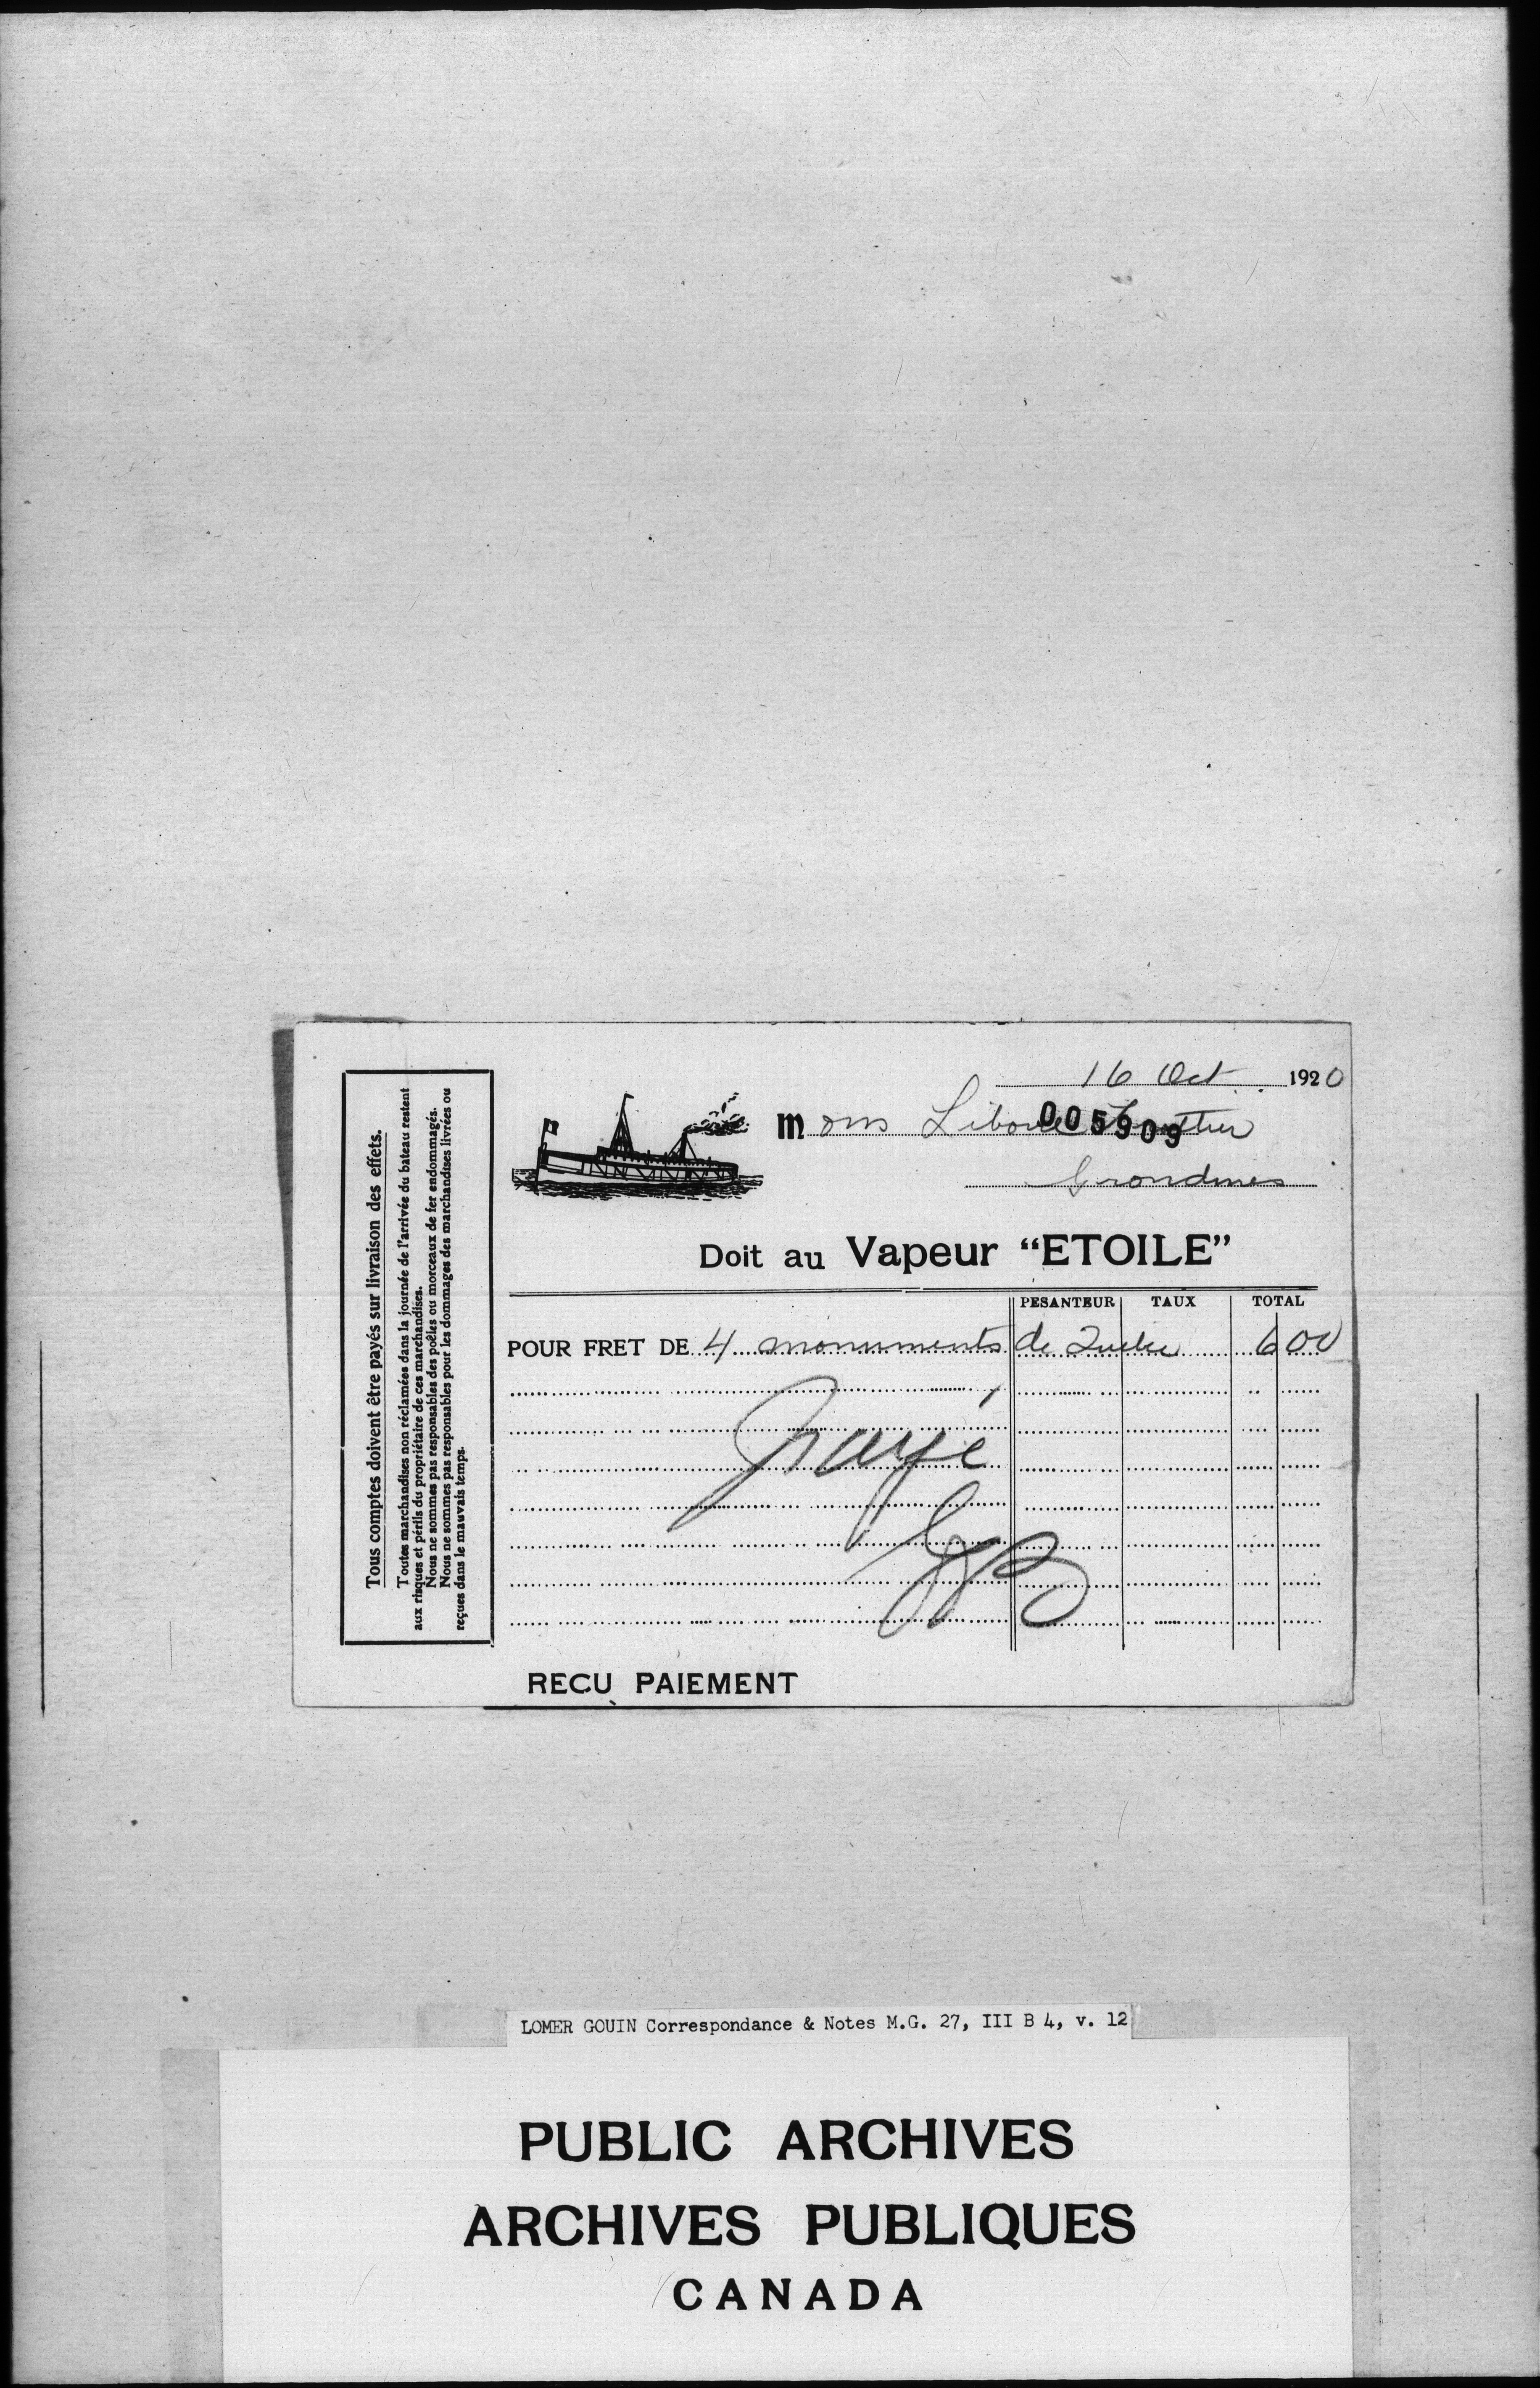 Tous comptes doivent être payés sur livraison des effets.
Toutes marchandises non réclamées dans la journée de l'arrivée du bateau restent
aux risques et périls du propriétaire de ces marchandises.
Nous ne sommes pas responsables des poêles ou morceaux de fer endommagés.
Nous ne sommes pas responsables pour les dommages des marchandises livrées ou
reçues dans le mauvais temps.
16 Oct 1920
Mons
005909
Grondines
Doit au Vapeur "ETOILE"
PESANTEUR TAUX TOTAL
POUR FRET DE 4 monuments de Quebec 6 00
payé
RECU PAIEMENT
LOMER GOUIN Correspondance & Notes M.G. 27, III B 4, v. 12
PUBLIC ARCHIVES
ARCHIVES PUBLIQUES
CANADA